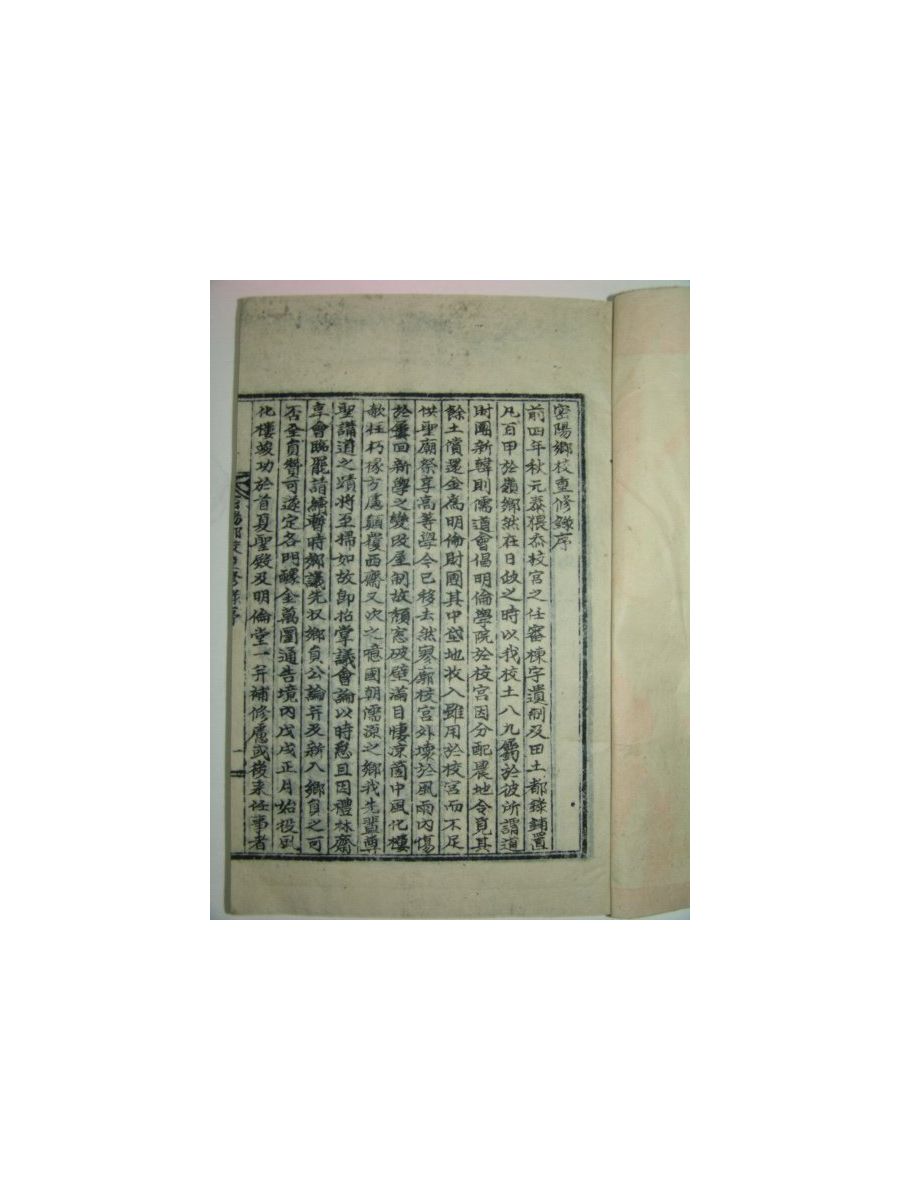 密陽鄉校重修錄序
前四年秋元泰猥忝校宮之任審棟宇遺制及田土都錄鋪置
凡百甲於嶺鄉然在日政之時以我校土八九屬於彼所謂道
財團新韓則儒道會倡明倫學院於校宮因分配農地令覓其
餘土償還金爲明倫財團其中垈地收入雖用於校宮而不足
供聖廟祭享高等學今已移去然寥廓校宮外壞於風雨內傷
於屢回新學之變改屋制故頹窓破壁滿目悽凉箇中風化樓
欹柱朽椽方虞顚覆西齋又次之噫國朝儒源之鄉我先輩尊
聖講道之蹟將至掃如故卽招掌議會論以時愁且因禮林齋
享會臨罷請續暫時鄉議先收鄉員公論幷及新入鄉員之可
否至貟贊可遂定各門醵金萬圜通告境內戊戌正月始役風
化樓竣功於首夏聖殿及明倫堂一幷補修慮或後來任事者